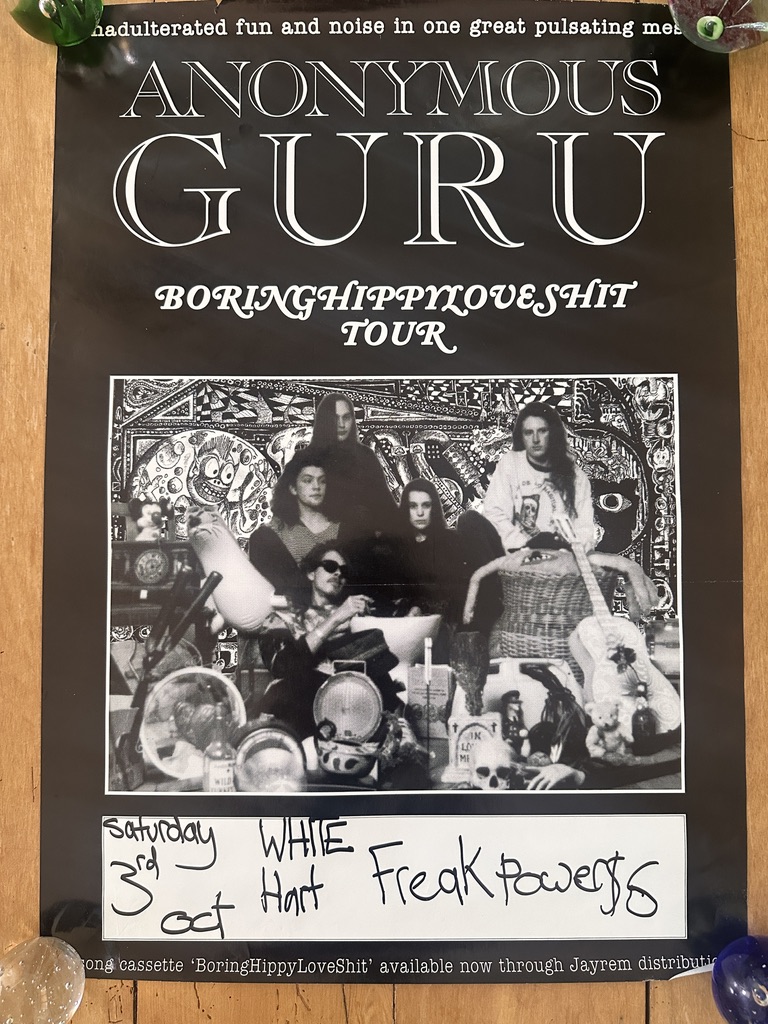 nadulterated fun and noise in one great pulsating mes
ANONYMOUS
GURU
BORINGHIPPYLOVESHIT
TOUR
WILD
IN
LO
ME
saturday WHITE
3rd Hart Freak Power $6
oct
song cassette 'BoringHippyLoveShit' available now through Jayrem distributio